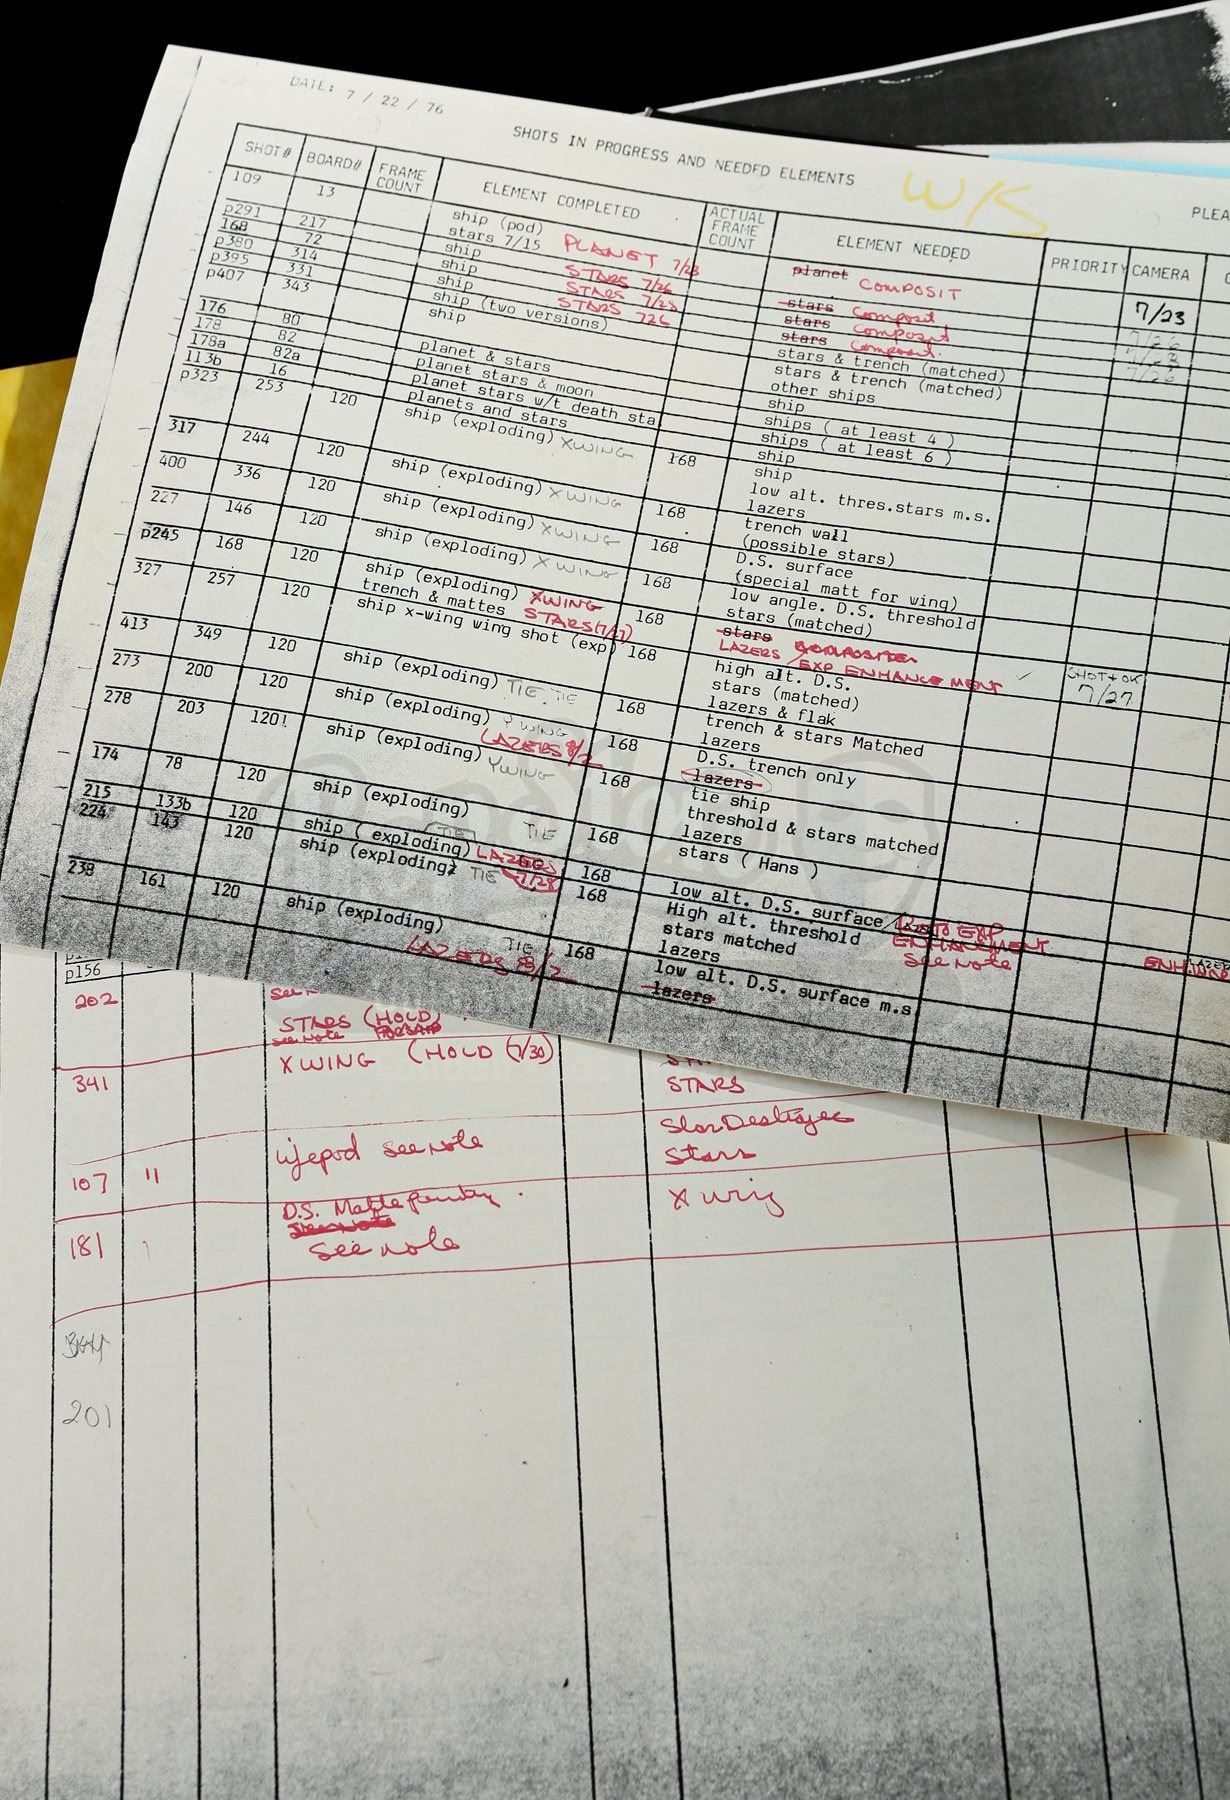 DATE: 7 / 22 / 76
SHOTS IN PROGRESS AND NEEDED ELEMENTS
WKS
PLEA
SHOT# BOARD# FRAME COUNT ELEMENT COMPLETED ACTUAL FRAME COUNT ELEMENT NEEDED PRIORITY CAMERA
109 13 ship (pod) planet COMPOSIT 7/23
stars 7/15 PLANET 7/23
p291 217 ship STARS 7/26 stars Composit 7/26
168 72 ship STARS 7/28 stars Composit 7/28
p380 314 ship STARS 726 stars Composit. 7/26
p395 331 ship (two versions) stars & trench (matched)
p407 343 ship stars & trench (matched)
other ships
176 80 planet & stars ship
178 82 planet stars & moon ships ( at least 4 )
178a 82a planet stars w/t death sta ships ( at least 6 )
113b 16 planets and stars ship
p323 253 120 ship (exploding) XWING 168 ship
low alt. thres.stars m.s.
lazers
317 244 120 ship (exploding) XWING 168 trench wall
(possible stars)
400 336 120 ship (exploding) XWING 168 D.S. surface
(special matt for wing)
227 146 120 ship (exploding) XWING 168 low angle. D.S. threshold
stars (matched)
p245 168 120 ship (exploding) XWING 168 stars COMPOSITE
trench & mattes STARS (7/27) LAZERS / EXP ENHANCEMENT SHOT & OK 7/27
327 257 120 ship x-wing wing shot (exp) 168 high alt. D.S.
stars (matched)
lazers & flak
413 349 120 ship (exploding) TIE TIE 168 trench & stars Matched
lazers
273 200 120 ship (exploding) Y WING 168 D.S. trench only
LAZERS 8/2 lazers
278 203 120! ship (exploding) YWING 168 tie ship
threshold & stars matched
lazers
174 78 120 ship (exploding) TIE 168 stars ( Hans )
215 133b 120 ship ( exploding) TIE LAZERS 7/28 168 low alt. D.S. surface / ENHANCEMENT
see Note
224 143 120 ship (exploding) TIE 168 High alt. threshold
stars matched
lazers
238 161 120 ship (exploding) TIE 168 low alt. D.S. surface m.s
LAZERS 8/2 lazers
p156
202 STARS (HOLD)
see Note
X WING (HOLD (7/30)
341 STARS
Star Destroyer
107 " lifepod see note Stars
D.S. Matte X wing
181 see note
201